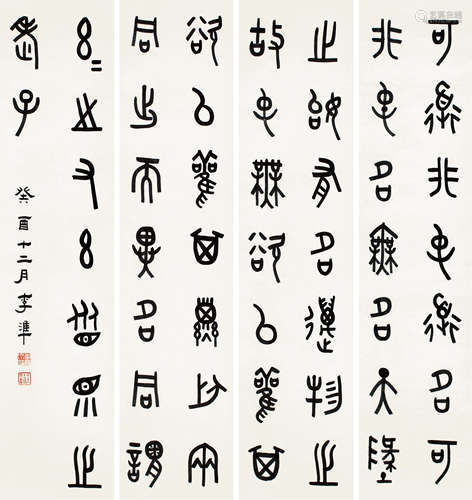 可道非常道名可
非常名無名天墬
之始有名萬物之
故常無欲以觀其
欲以觀其徼此兩
同出而異名同謂
玄=之又玄眾眇之
老子
癸酉十二月李準